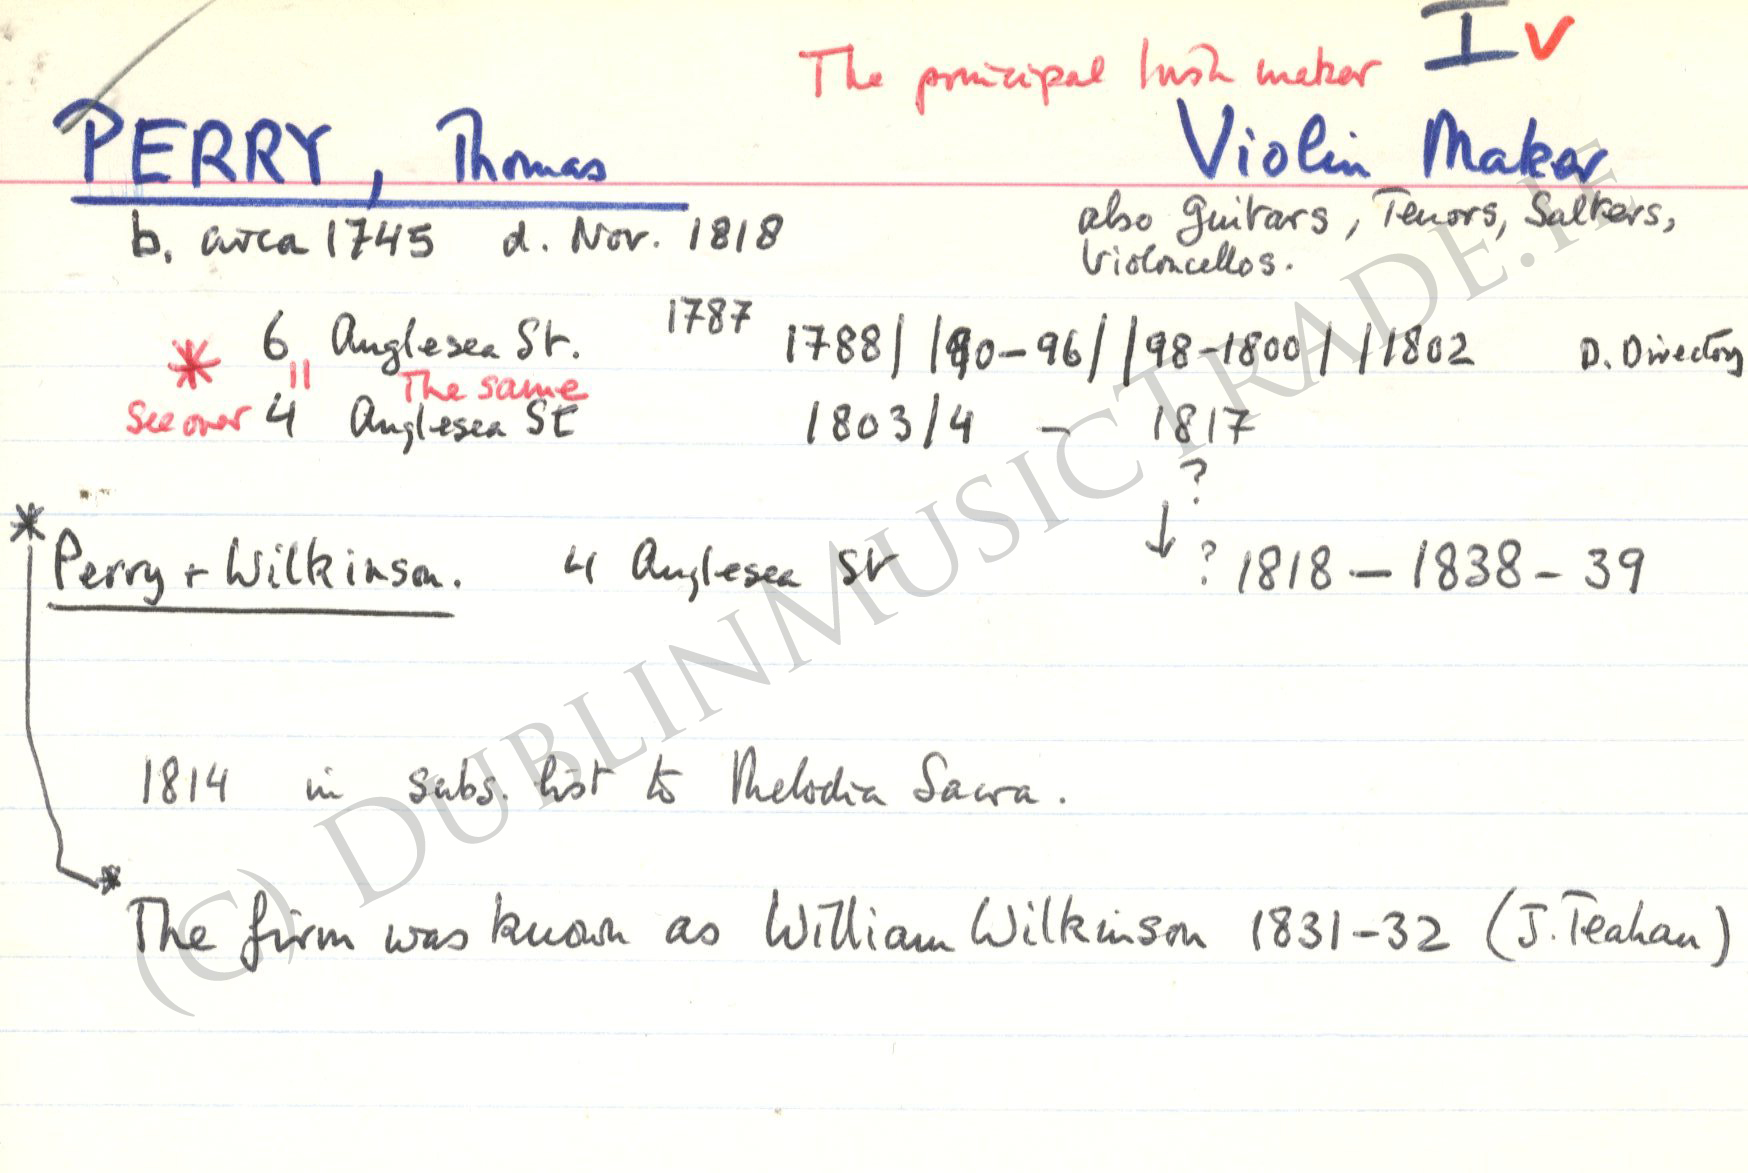 The principal Irish maker I V
PERRY, Thomas Violin Maker
b. circa 1745 d. Nov. 1818 also Guitars, Tenors, Salters,
Violoncellos.
6 Anglesea St. 1787 1788/ /90-96/ /98-1800/ /1802 D. Directory
* " The same
See over 4 Anglesea St 1803/4 - 1817
?
↓
* Perry + Wilkinson. 4 Anglesea St ? 1818 - 1838-39
1814 in subs. list to Melodia Sacra.
* The firm was known as William Wilkinson 1831-32 (J. Teahan)
(C) DUBLINMUSICTRADE.IE